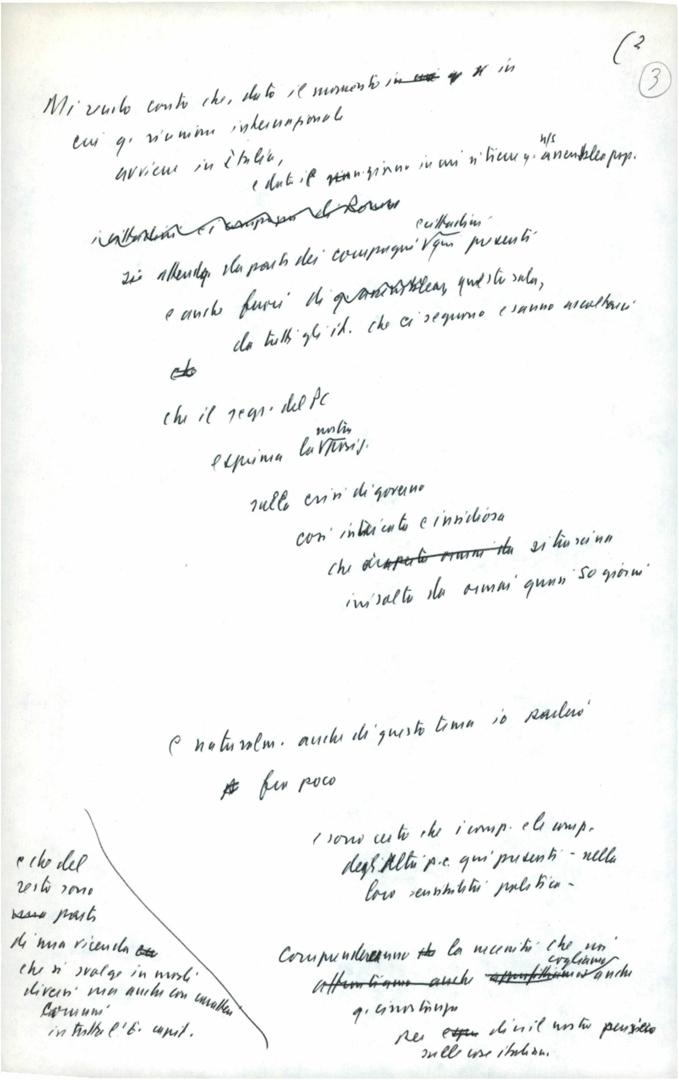 (2
3
Mi rendo conto che, dato il momento in
cui q. riunione internazionale
avviene in Italia,
e dato il giorno in cui si tiene q. n/s assemblea pop.
si attende da parte dei compagni e cittadini qui presenti
e anche fuori di questa sala,
da tutti gli it. che ci seguono e sanno ascoltarci
che il segr. del PC
esprima la nostra posiz.
sulla crisi di governo
così intricata e insidiosa
che si trascina
irrisolta da ormai quasi 50 giorni
e naturalm. anche di questo tema io parlerò
fra poco
e sono certo che i comp. e le comp.
degli altri p.c. qui presenti - nella
loro sensibilità politica -
comprenderanno la necessità che noi
vogliamo anche
q. circostanza
per dire il nostro pensiero
sulle cose italiane.
e che del
resto sono
parte
di una vicenda
che si svolge in modi
diversi ma anche con caratteri
comuni
in tutta l'E. capit.